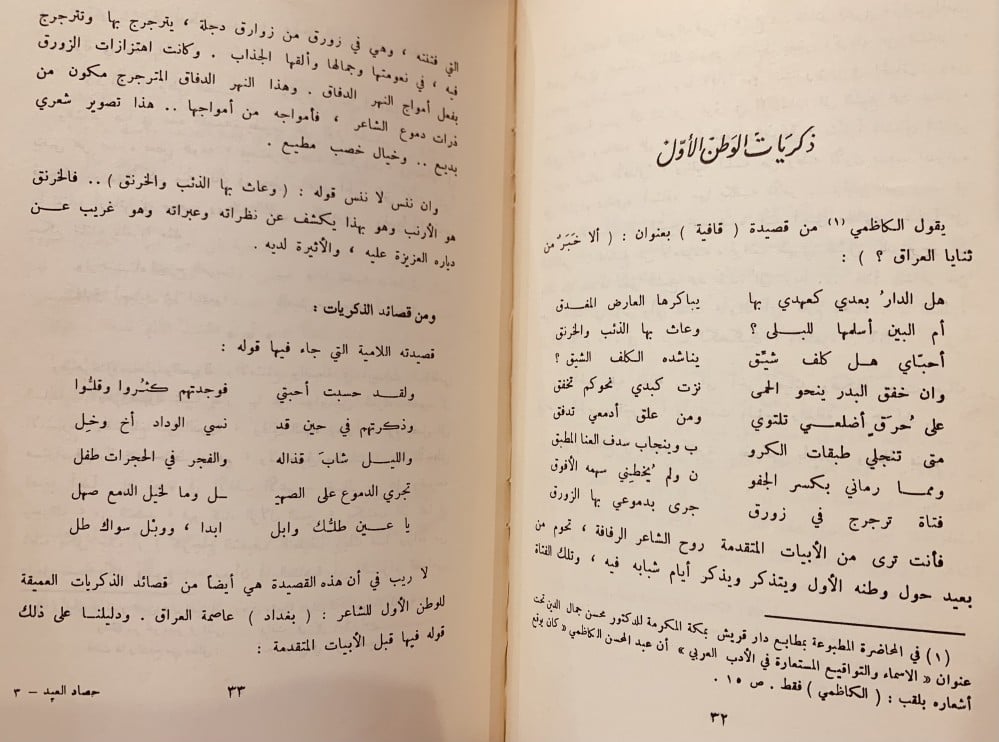 ذكريات الوطن الأول
يقول الكاظمي (١) من قصيدة ( قافية ) بعنوان : ( ألا خَبَرٌ من
ثنايا العراق ؟ ) :
هل الدارُ بعدي كعهدي بها يباكرها العارض المغدق
أم البين أسلمها للبلى ؟ وعاث بها الذئب والخرنق
أحبّاي هل كلف شيّق يناشده الكلف الشيق ؟
وان خفق البدر ينحو الحمى نزت كبدي نحوكم تخفق
على حُرَقٍ أضلعي تلتوي ومن علق أدمعي تدفق
متى تنجلي طبقات الكرو ب وينجاب سدف العنا المطبق
ومما رماني بكسر الجفو ن ولم يُخطِني سهمه الأفوق
فتاة ترجرج في زورق جرى بدموعي بها الزورق
فأنت ترى من الأبيات المتقدمة روح الشاعر الرفافة ، تحوم من
بعيد حول وطنه الأول ويتذكر ويذكر أيام شبابه فيه ، وتلك الفتاة
(١) في المحاضرة المطبوعة بمطابع دار قريش بمكة المكرمة للدكتور محسن جمال الدين تحت
عنوان « الاسماء والتواقيع المستعارة في الأدب العربي » أن عبد المحسن الكاظمي « كان يوقع
أشعاره بلقب : ( الكاظمي ) فقط . ص ١٥ .
٣٢
التي فتنته ، وهي في زورق من زوارق دجلة ، يترجرج بها وتترجرج
فيه ، في نعومتها وجمالها وألقها الجذاب . وكانت اهتزازات الزورق
بفعل أمواج النهر الدفاق . وهذا النهر الدفاق المترجرج مكون من
ذرات دموع الشاعر ، فأمواجه من أمواجها .. هذا تصوير شعري
بديع .. وخيال خصب مطيع .
وان ننس لا ننس قوله : ( وعاث بها الذئب والخرنق ) .. فالخرنق
هو الأرنب وهو بهذا يكشف عن نظراته وعبراته وهو غريب عن
دياره العزيزة عليه ، والأثيرة لديه .
ومن قصائد الذكريات :
قصيدته اللامية التي جاء فيها قوله :
ولقد حسبت أحبتي فوجدتهم كثُروا وقلُّوا
وذكرتهم في حين قد نسي الوداد أخ وخِل
والليل شابَ قذاله والفجر في الحجرات طفل
تجري الدموع على الصهيـ ـل وما لخيل الدمع صهل
يا عين طلُّك وابل ابدا ، ووبْل سواك طل
لا ريب في أن هذه القصيدة هي أيضاً من قصائد الذكريات العميقة
للوطن الأول للشاعر : ( بغداد ) عاصمة العراق . ودليلنا على ذلك
قوله فيها قبل الأبيات المتقدمة :
٣٣
حصاد العيد – ٣